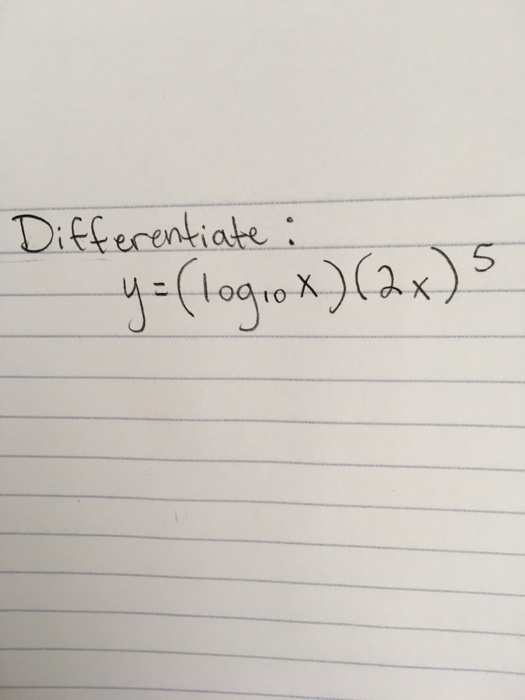 Differentiate :
y=(log₁₀x)(2x)⁵